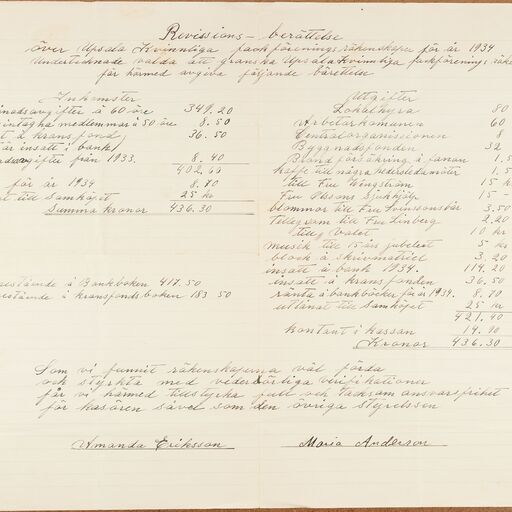 Revissions-berättelse
över Upsala Kvinnliga fackförenings räkenskaper för år 1934
Undertecknade valda att granska Upsala kvinnliga fackförenings
får härmed avgiva följande bärettelse
Inkomster
å 60 öre 349.20
intagna medlemmar á 50 öre 8.50
å kransfond 36.50
är insatt i bank
från 1933. 8.40
402,60
för år 1934 8.70
till Samköpet 25 kr
Summa kronor 436.30
å Bankboken 417.50
å kransfondsboken 183 50
Utgifter
Lokalhyra 80
Arbetarkomunen 60
Centralorganissionen 8
Byggnadsfonden 32
Brandförsäkring å fanan 1.5
kaffe till några
till Fru Wingström 15 k
Fru Olssons sjukhjälp 15
blommor till Fru 3.50
Telegram till Fru Linberg 2.20
10 kr
musik till 15 års jubeleet 5 kr
block å skrivmatriel 3.20
insatt å bank 1934. 114.20
insatt å kransfonden 36.50
ränta å bankböcker för år 1934. 8.70
utlånat till Samköpet 25 kr
421.40
kontant i kassan 14.90
Kronor 436.30
Som vi funnit räkenskaperna väl förda
och styrkta med vederbörliga verifikationer
får vi härmed tillstyrka full och tacksam ansvarsfrihet
för kasören såvel som den övriga styrelssen
Amanda Eriksson Maria Anderson